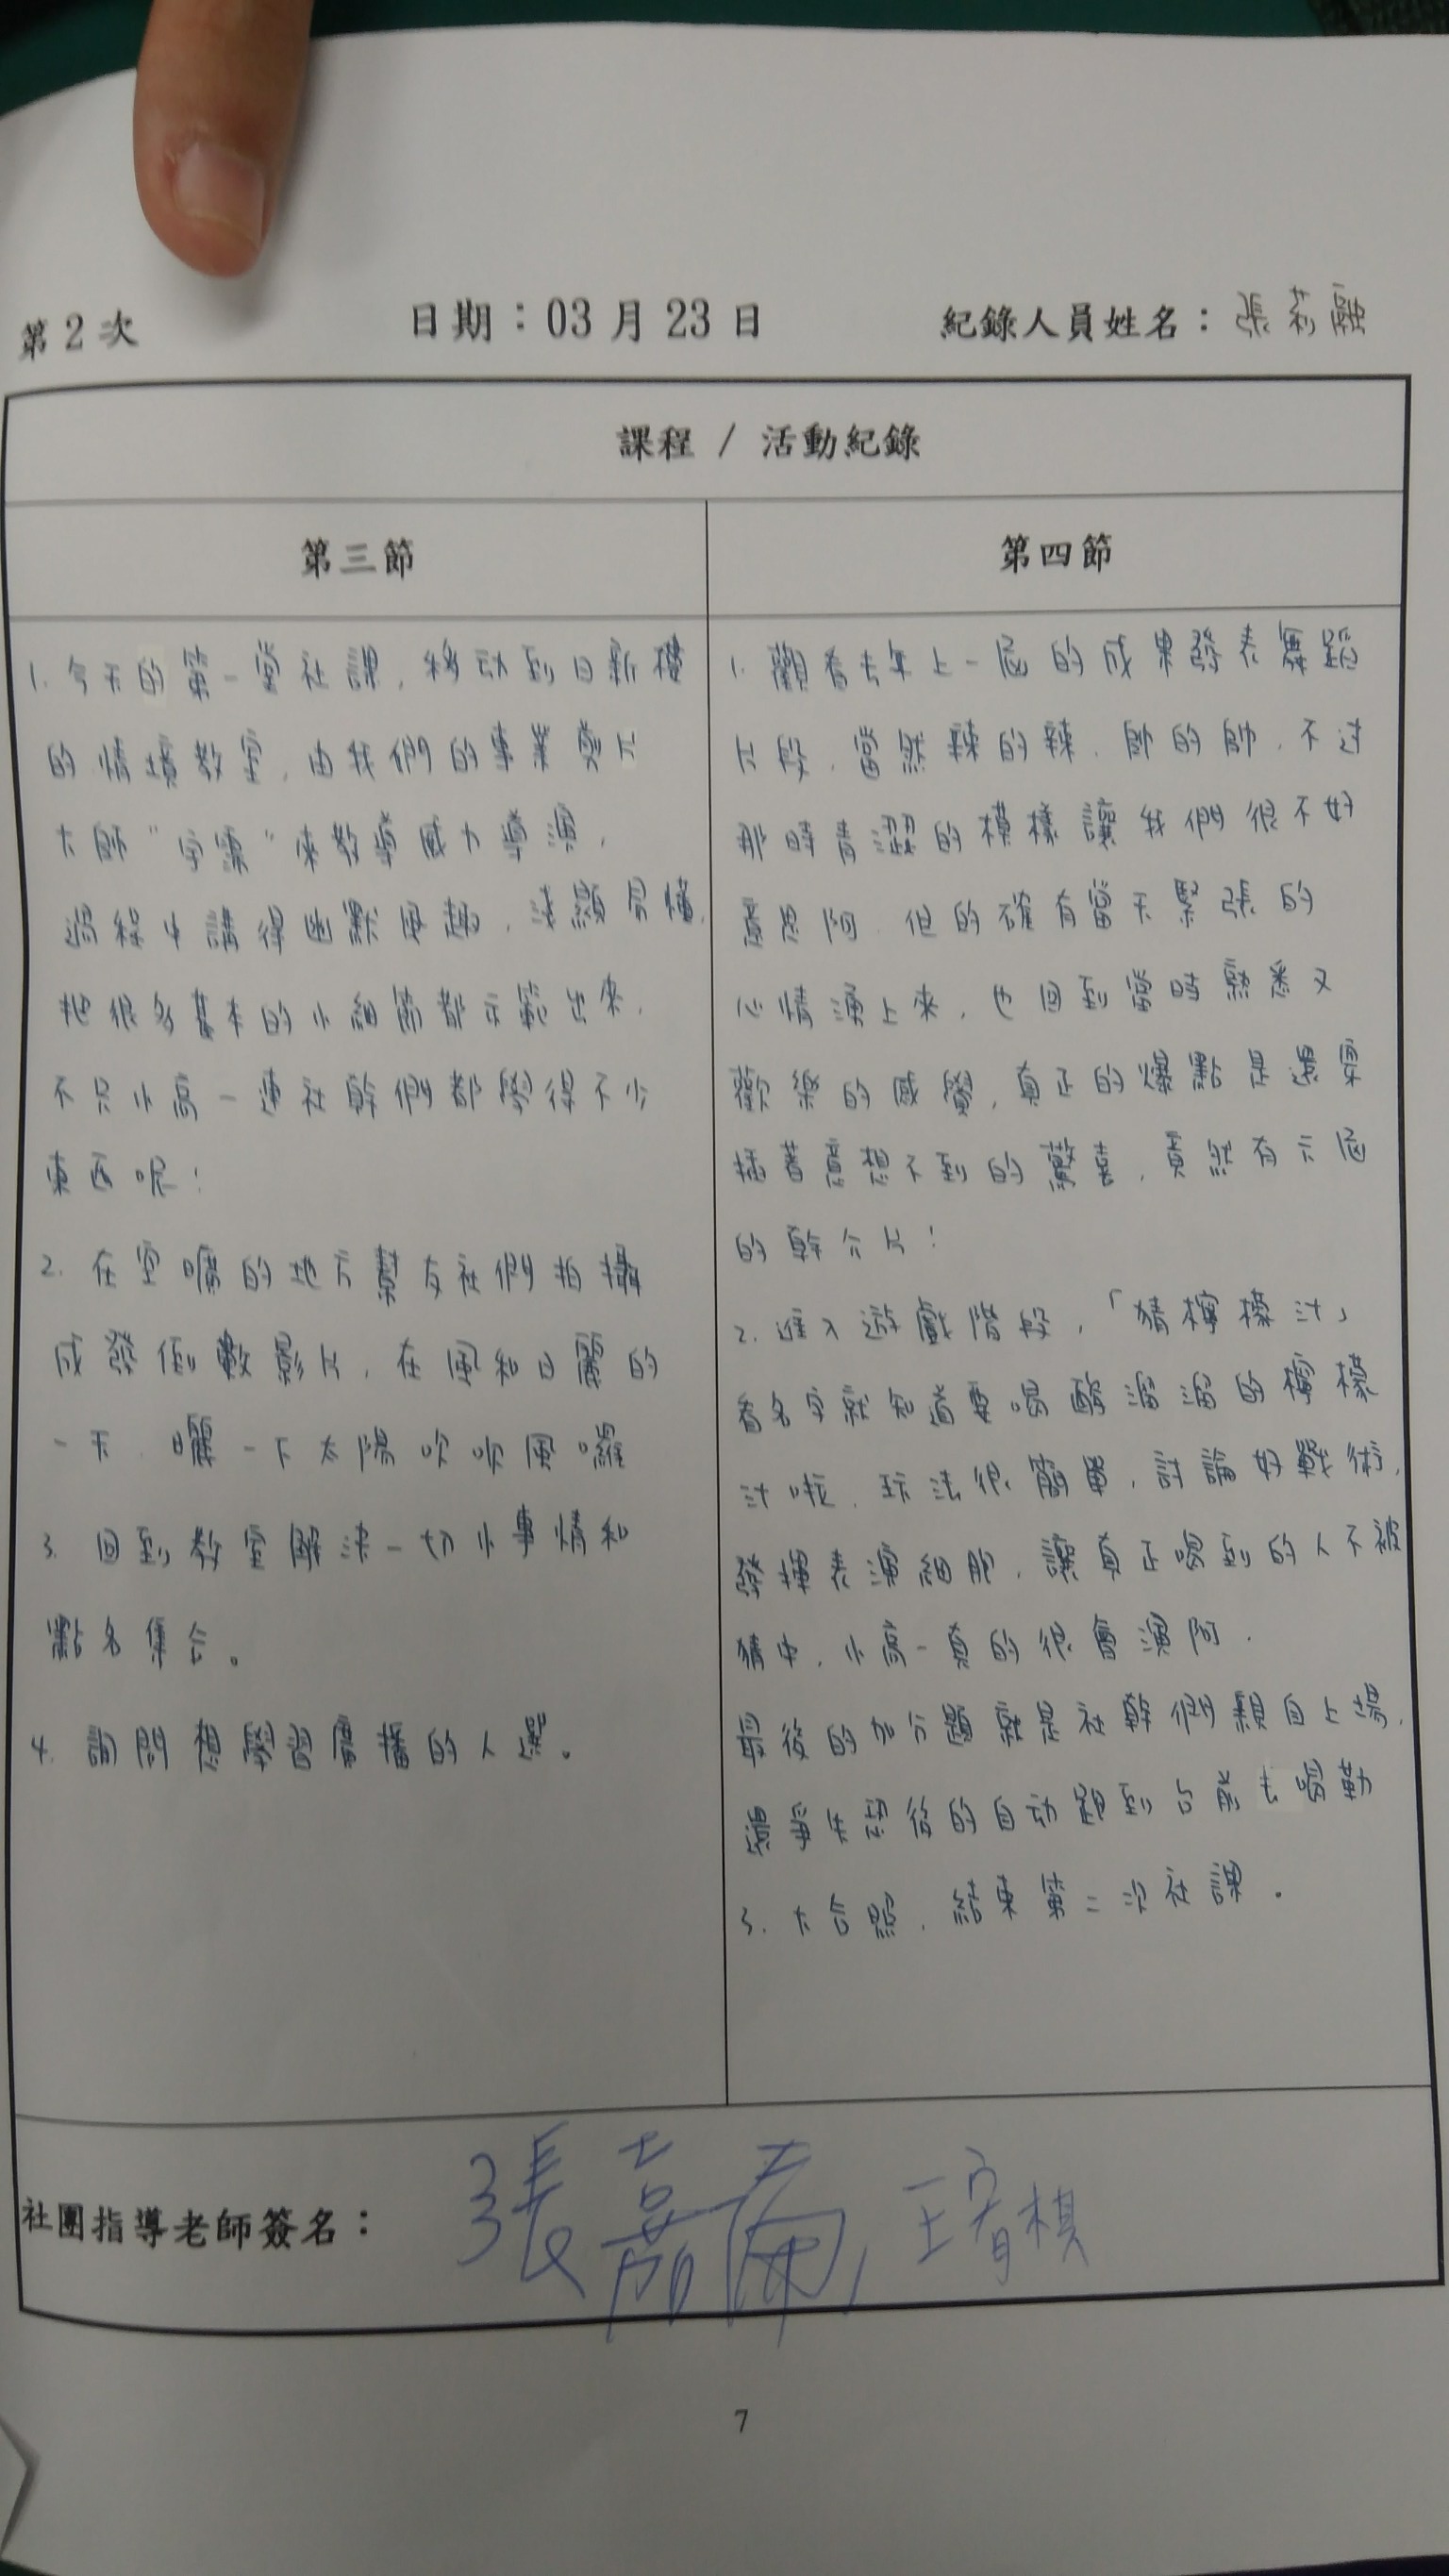 第2次 日期：03月23日 紀錄人員姓名：張莉融
課程 / 活動紀錄
第三節
1. 今天的第一堂社課，移動到日新樓
的情境教室，由我們的專業剪片
大師“宇霈”來教導威力導演，
過程中講得幽默風趣，淺顯易懂，
把很多基本的小細節都示範出來，
不只小高一連社幹們都學得不少
東西呢！
2. 在空曠的地方幫友社們拍攝
成發倒數影片，在風和日麗的
一天，曬一下太陽吹吹風囉
3. 回到教室解決一切小事情和
點名集合。
4. 詢問想學習廣播的人選。
第四節
1. 觀看去年上一屆的成果發表舞蹈
片段，當然辣的辣，帥的帥，不過
那時青澀的模樣讓我們很不好
意思阿，但的確有當天緊張的
心情湧上來，也回到當時熟悉又
歡樂的感覺，真正的爆點是還穿
插著意想不到的驚喜，竟然有六屆
的幹介片！
2. 進入遊戲階段，「猜檸檬汁」
看名字就知道要喝酸溜溜的檸檬
汁啦，玩法很簡單，討論好戰術，
發揮表演細胞，讓真正喝到的人不被
猜中，小高一真的很會演阿．
最後的加分題就是社幹們親自上場，
還爭先恐後的自動跑到台前去喝勒
3. 大合照，結束第二次社課．
社團指導老師簽名：張嘉
7